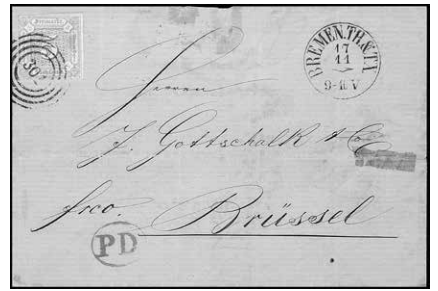 301
BREMEN.TH.&TX.
17
11
9-11 V
Herren
J. Gottschalk & Co
frco. Brüssel
PD